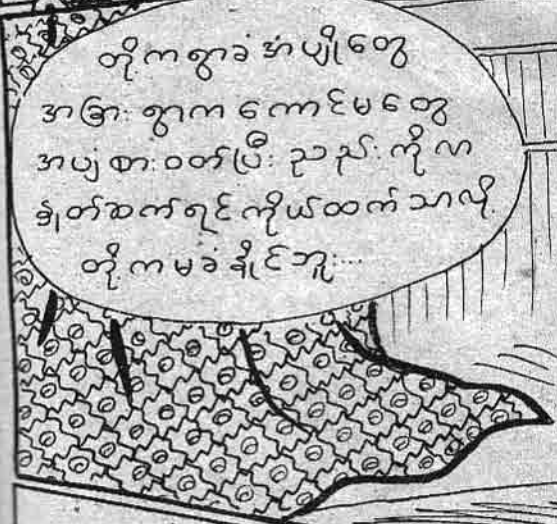 တို့ကရွာခံအံပျိုတွေ
အခြားရွာကကောင်မတွေ
အပျံစားဝတ်ပြီးညည်းကိုလာ
နှုတ်ဆက်ရင်ကိုယ်ထက်သာလို့
တို့ကမခံနိုင်ဘူး...